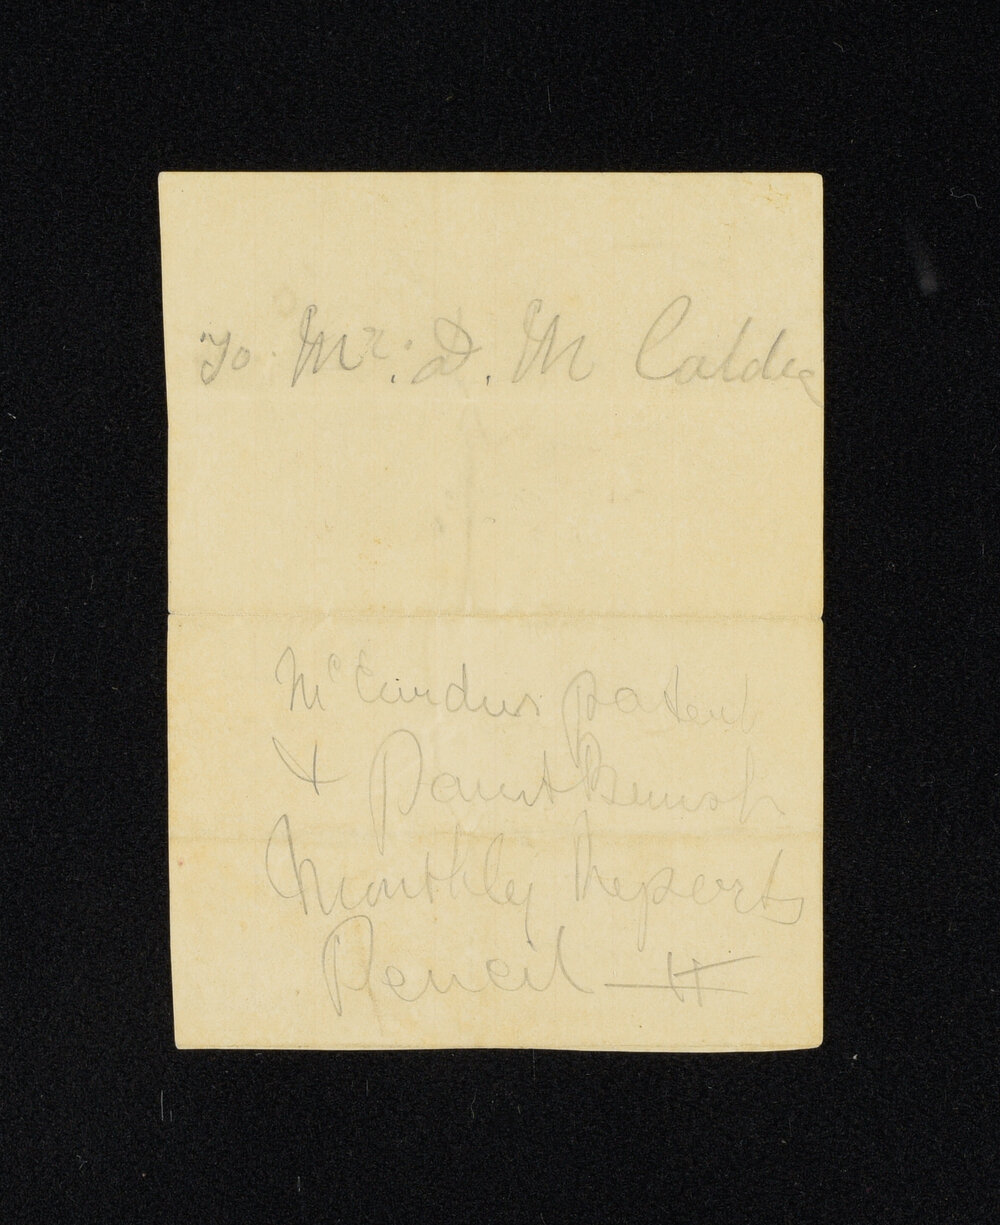 To Mr. D. M Calder
Mc patent
& Paint Brush
Monthly Reports
Pencil — H